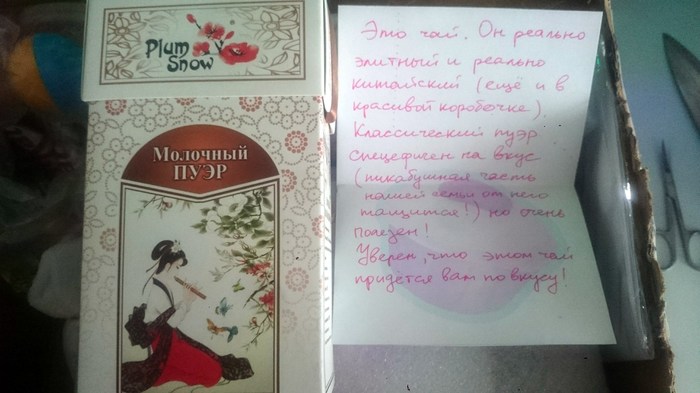 Plum
Snow
Молочный
ПУЭР
Это чай. Он реально
элитный и реально
китайский (ещё и в
красивой коробочке).
Классический пуэр
спецефичен на вкус
(пикабушная часть
нашей семьи от него
тащится!) но очень
полезен!
Уверен, что этот чай
придётся вам по вкусу!